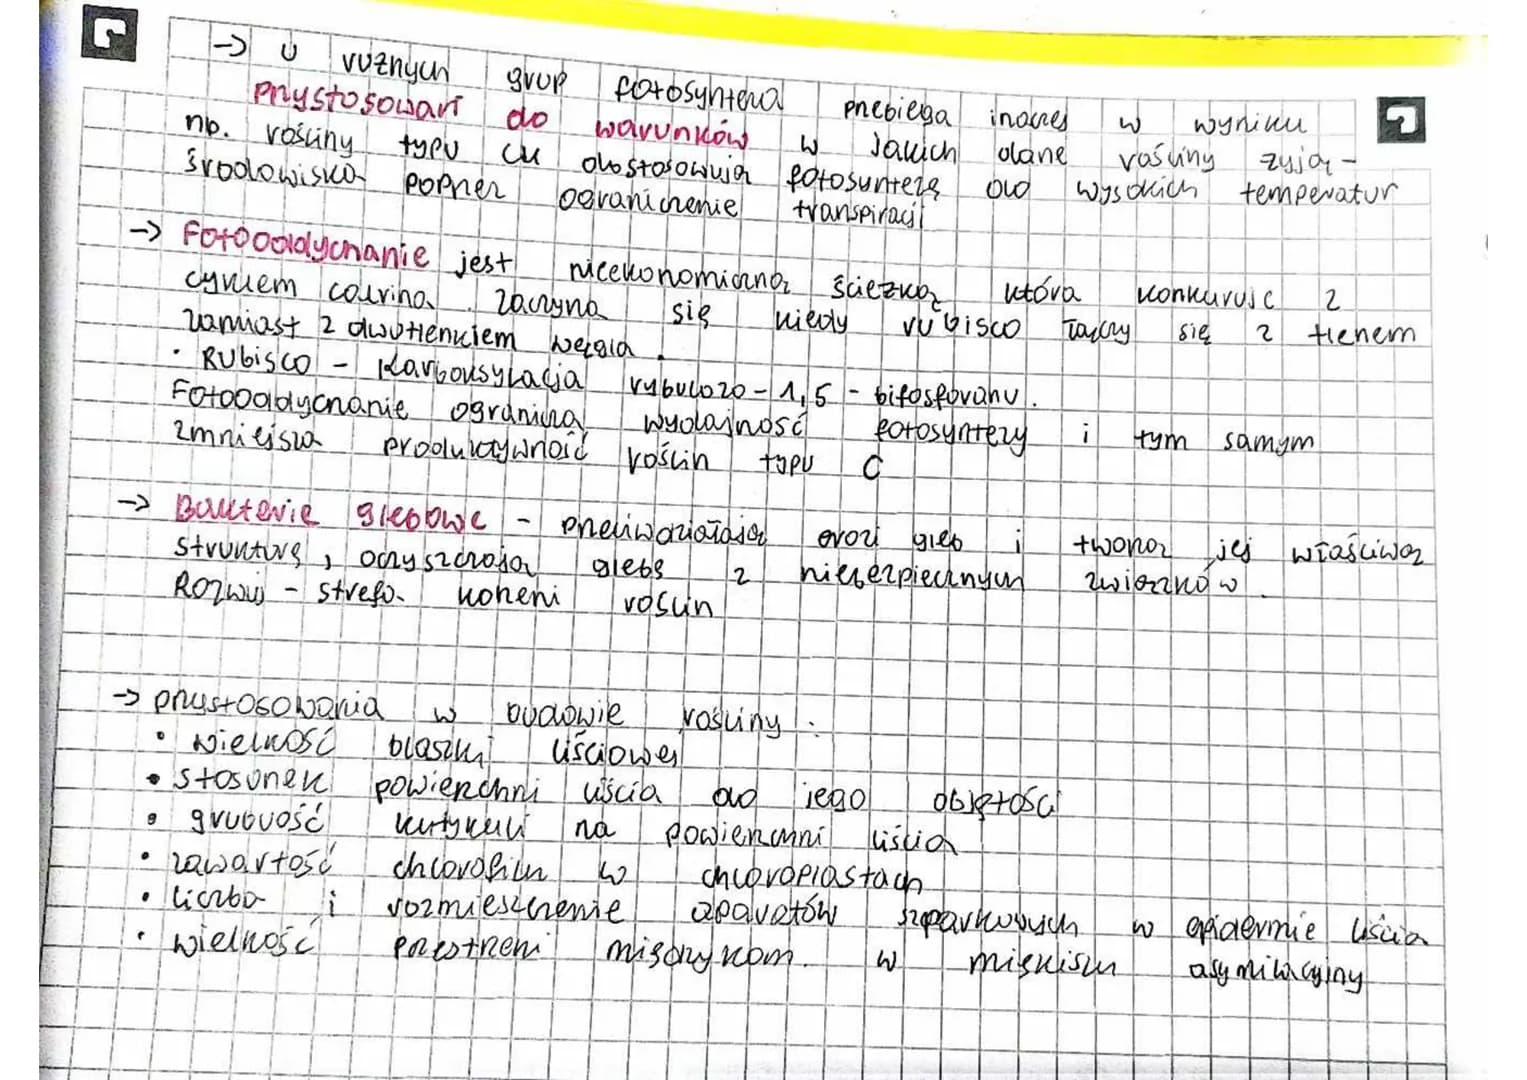 → U różnych grup fotosynteza przebiega inaczej w wyniku
przystosowań do warunków w jakich dane rośliny żyją -
np. rośliny typu C4 dostosowują fotosyntezę do wysokich temperatur
środowiska poprzez ograniczenie transpiracji
→ Fotooddychanie jest nieekonomiczną ścieżką która konkuruje z
cyklem calvina. Zaczyna się kiedy rubisco łączy się z tlenem
zamiast z dwutlenkiem węgla.
• Rubisco - karboksylacja rybulozo-1,5-bifosforanu.
Fotooddychanie ogranicza wydajność fotosyntezy i tym samym
zmniejsza produktywność roślin typu C
→ Bakterie glebowe - przeciwdziałają erozji gleb i tworzą jej właściwą
strukturę, oczyszczają glebę z niebezpiecznych związków.
Rozwój - strefa korzeni roślin
→ przystosowania w budowie rośliny:
• wielkość blaszki liściowej
• stosunek powierzchni liścia do jego objętości
• grubość kutykuli na powierzchni liścia
• zawartość chlorofilu w chloroplastach
• liczba i rozmieszczenie aparatów szparkowych w epidermie liścia
• wielkość przestrzeni międzykom. w miękiszu asymilacyjny